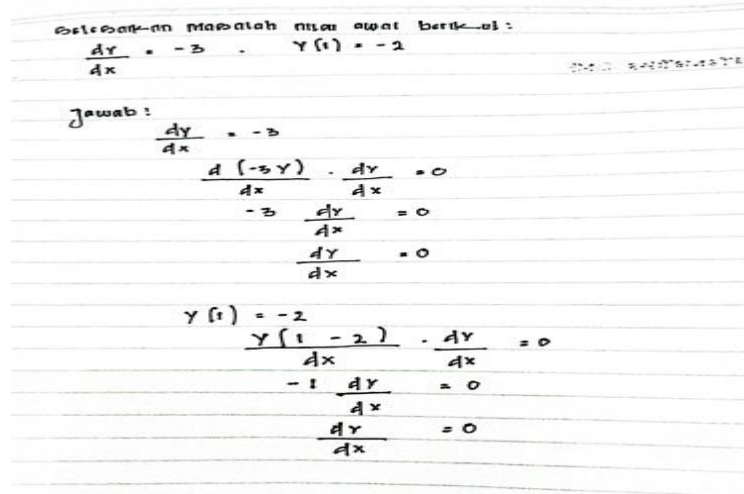 Selesaikan masalah nilai awal berikut :
dy/dx = -3 . Y(1) = -2
Jawab :
dy/dx = -3
d(-3Y)/dx . dy/dx = 0
-3 dy/dx = 0
dy/dx = 0
Y(1) = -2
Y(1 - 2)/dx . dy/dx = 0
-1 dy/dx = 0
dy/dx = 0